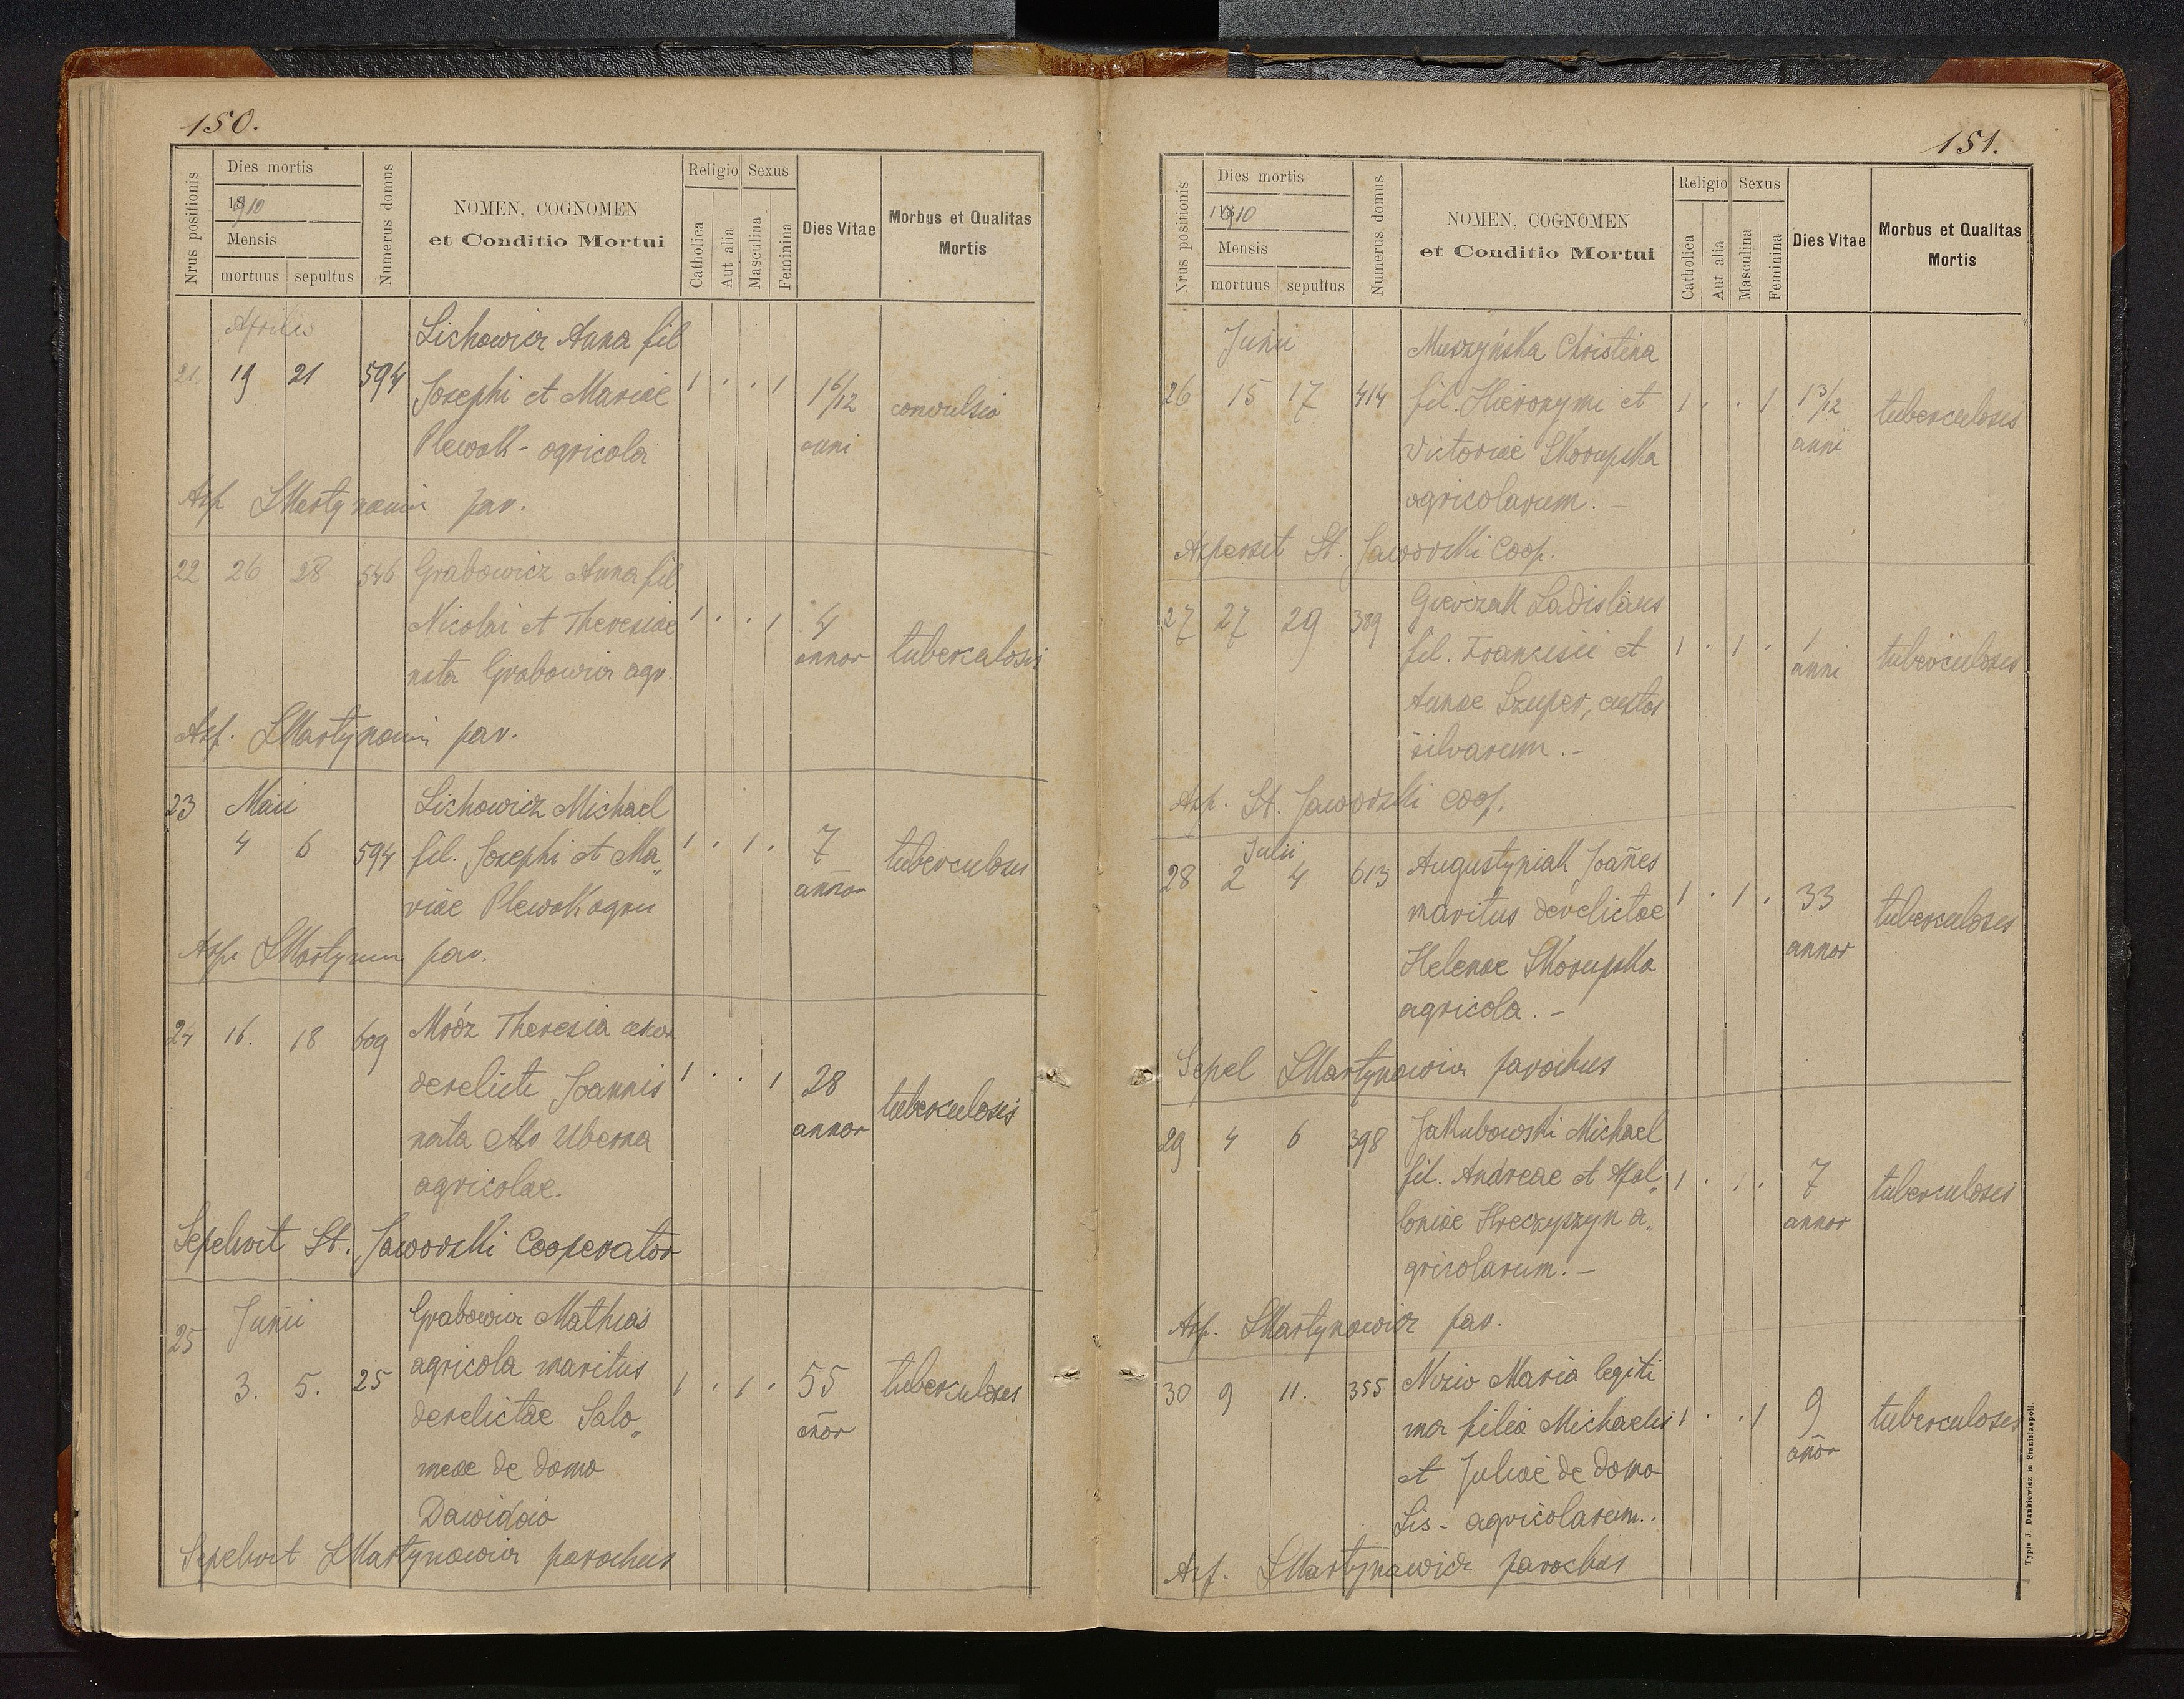 150.
Nrus positionis
Dies mortis
1910
Mensis
mortuus sepultus
Numerus domus
NOMEN, COGNOMEN
et Conditio Mortui
Religio Sexus
Catholica
Aut alia
Masculina
Feminina
Dies Vitae
Morbus et Qualitas
Mortis
Aprilis
Lichowicz Anna fil
21. 19 21 594 Josephi et Mariae 1 . . 1 1 6/12 convulsio
Plewak - agricola anni
Asp SMartynowicz par.
22 26 28 546 Grabowicz Anna fil.
Nicolai et Theresiae 1 . . 1 4
nata Grabowicz agr. annor tuberculosis
Asp. SMartynowicz par.
23 Maii Lichowicz Michael
4 6 594 fil. Josephi et Ma„ 1 . 1 . 7 tuberculosis
riae Plewak agric annor
Asp SMartynowicz par.
24 16. 18 609 Mróz Theresia uxor
derelicti Joannis 1 . . 1 28 tuberculosis
nata Uberna annor
agricolae.
Sepelivit St. Jaworski Cooperator
25 Junii Grabowicz Mathias
3. 5. 25 agricola maritus 1 . 1 . 55 tuberculosis
derelictae Salo„ añor
meae de domo
Dawidów
Sepelivit SMartynowicz parochus
151.
Nrus positionis
Dies mortis
1910
Mensis
mortuus sepultus
Numerus domus
NOMEN, COGNOMEN
et Conditio Mortui
Religio Sexus
Catholica
Aut alia
Masculina
Feminina
Dies Vitae
Morbus et Qualitas
Mortis
Junii Muszyńska Christina
26 15 17 414 fil. Hieronymi et 1 . . 1 1 3/12 tuberculosis
Victoriae Skorupska anni
agricolarum. -
Asperset St. Jaworski Coop.
27 27 29 389 Gierczak Ladislaus
fil. Francisci et 1 . 1 . 1 tuberculosis
Annae Szuper, custos anni
silvarum. -
Asp. St. Jaworski coop.
Julii
28 2 4 613 Augustyniak Joañes
maritus derelictae 1 . 1 . 33 tuberculosis
Helenae Skorupska annor
agricola. -
Sepel SMartynowicz parochus
29 4 6 398 Jakubowski Michael
fil. Andreae et Apol„ 1 . 1 . 7 tuberculosis
loniae Hreczyszyn a„ annor
gricolarum. -
Asp. SMartynowicz par.
30 9 11. 355 Nizio Maria legiti
ma filia Michaelis 1 . . 1 9 tuberculosis
et Juliae de domo añor
Lis - agricolarum..
Asp. SMartynowicz parochus
Typis J. Dankiewicz in Stanislaopoli.